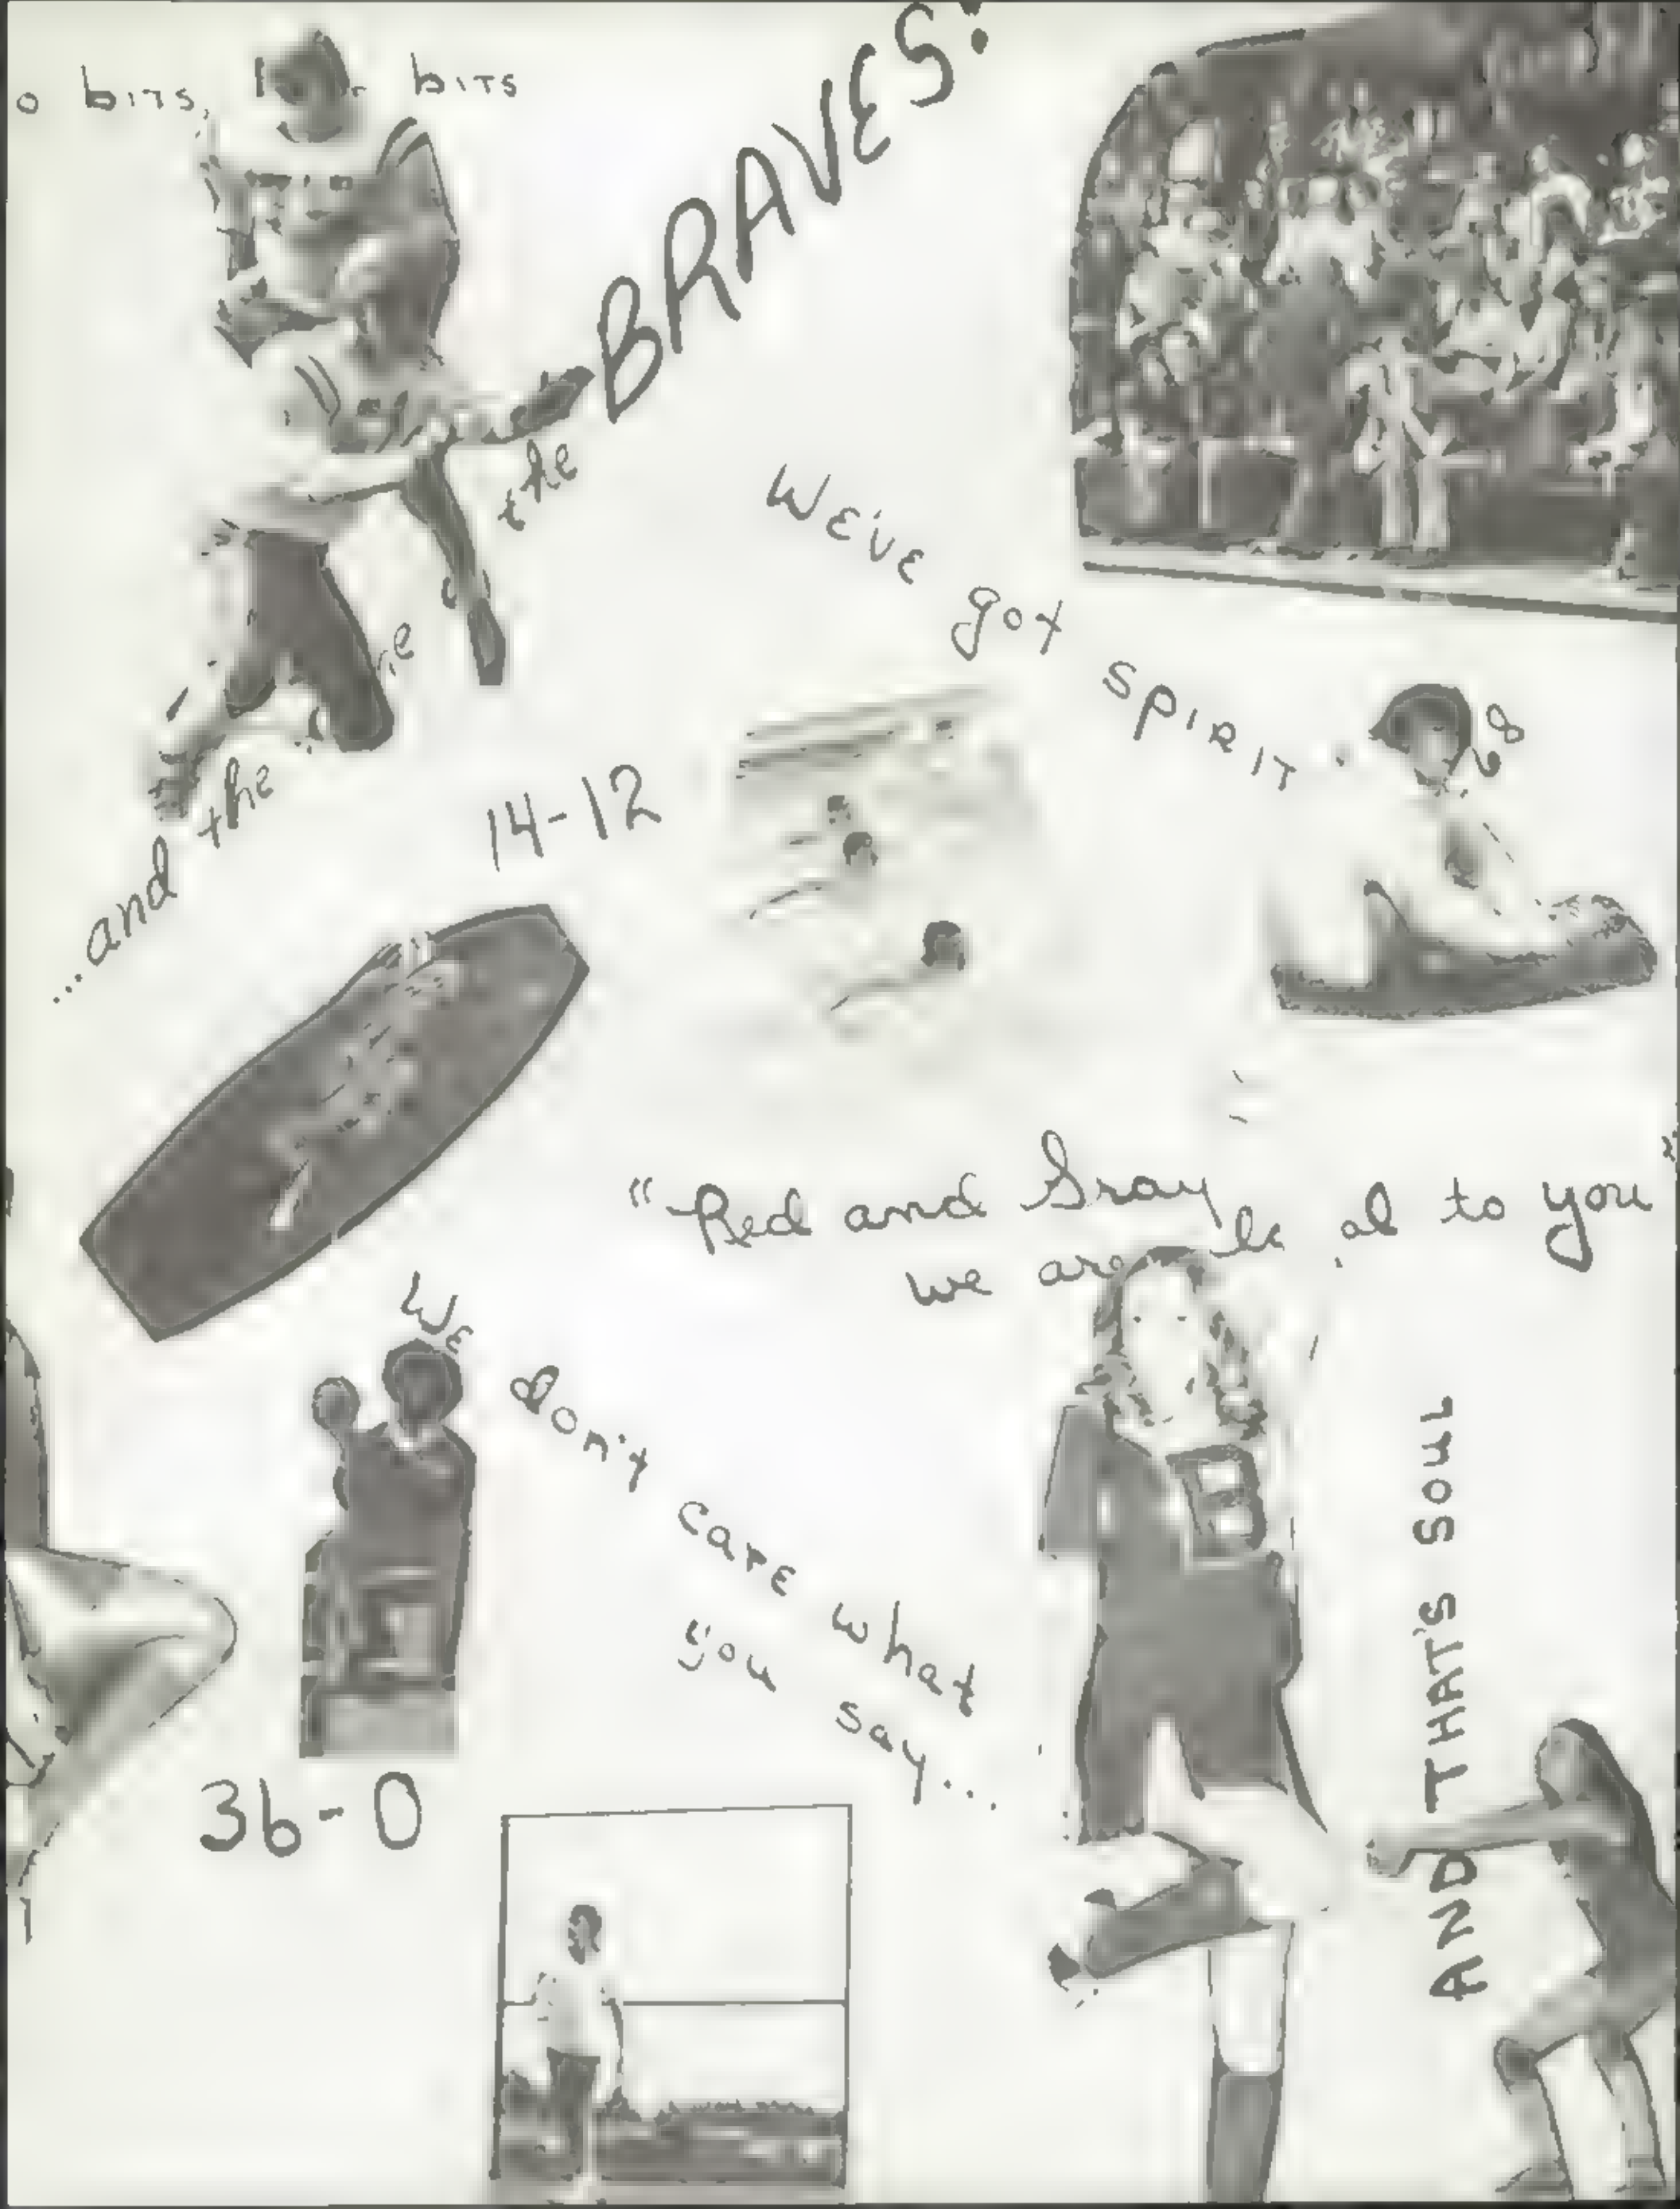 bits, bits
BRAVES!
the
...and the
We've got spirit
14-12
"Red and Gray
we are to you"
We don't care what
you say...
AND THAT'S SOUL
36-0